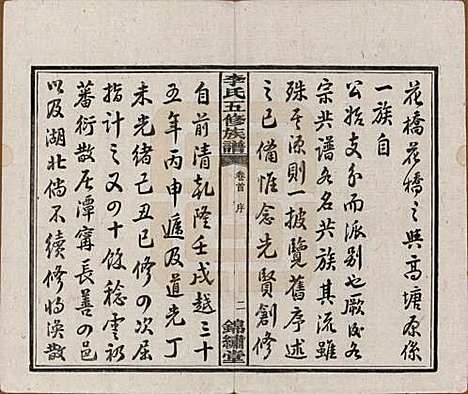 花橋花橋之與高塘原係
一族自
公始支分而派別也厥後各
宗共譜各名共族其流雖
殊其源則一披覽舊序述
之已備惟念先賢創修
李氏五修族譜
卷首 序
二
錦繡堂
自前清乾隆壬戌越三十
五年丙申遞及道光丁
未光緒己丑已修の次屈
指計之又の十餘稔雲礽
蕃衍散居潭甯長善の邑
以及湖北倘不續修將渙散